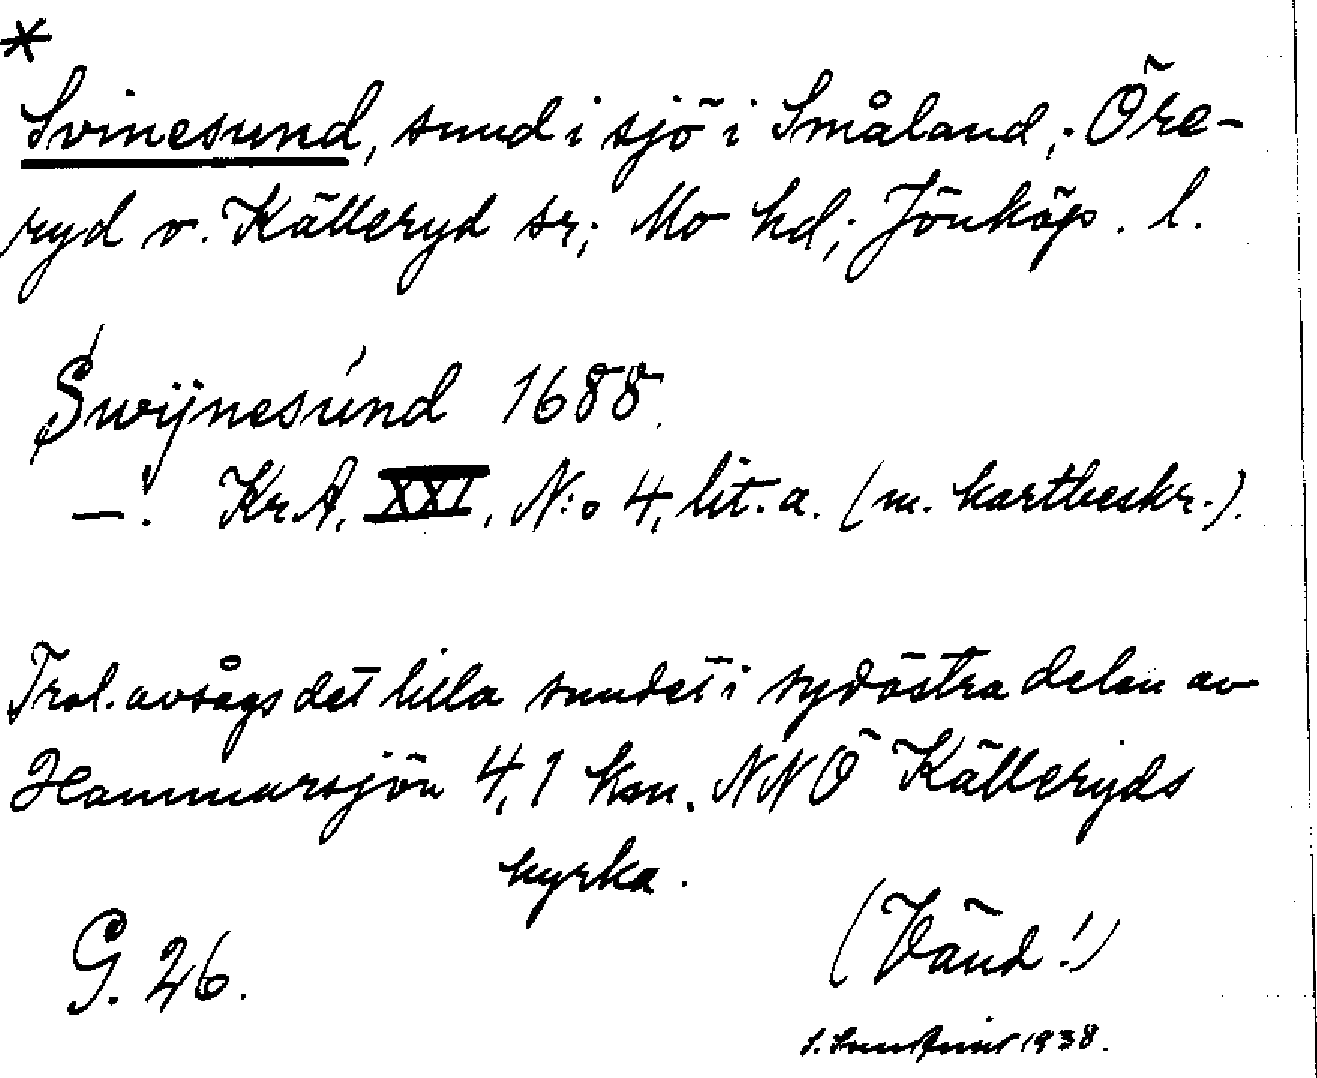 *
Svinesund, sund i sjö i Småland; Öre-
ryd o. Källeryd sr; Mo hd; Jönköp. l.
Swijnesund 1688.
—. Kr.A. XXI, N:o 4, lit. a. (m. kartbeskr.).
Trol. avsågs det lilla sundet i sydöstra delen av
Hammarsjön 4,1 km. NNÖ Källeryds
kyrka.
(Vänd!)
G. 26.
1938.